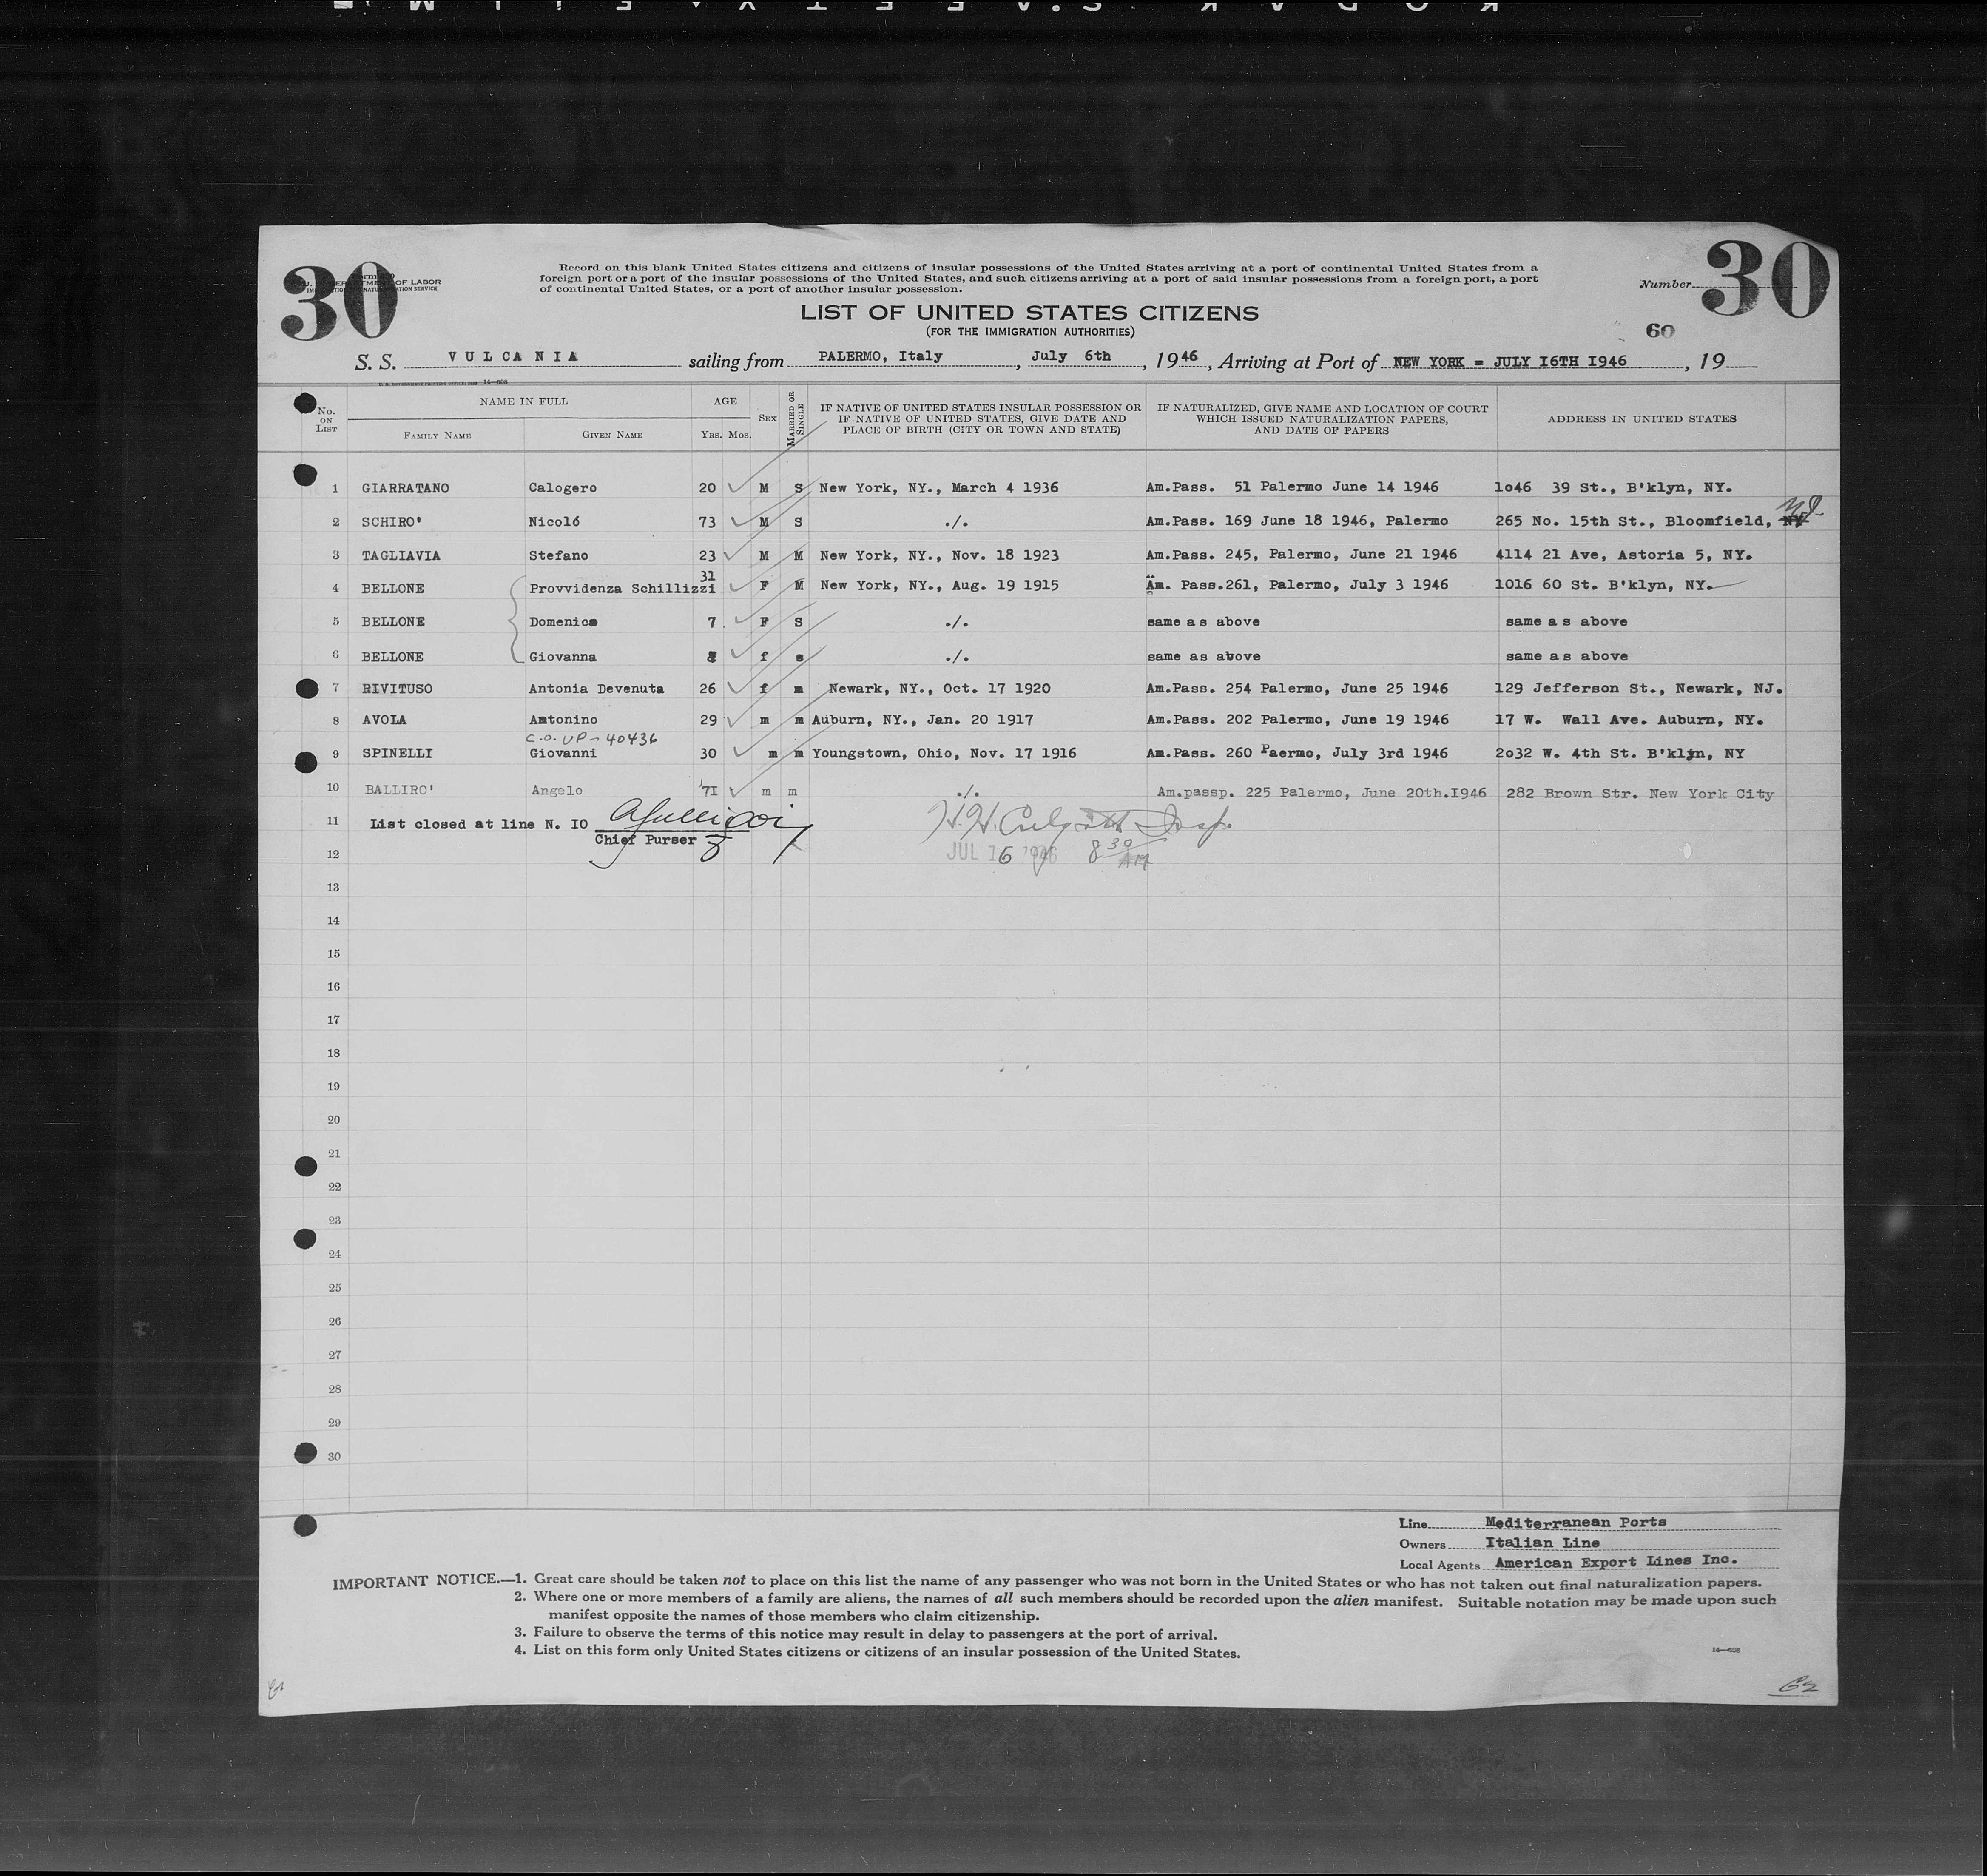 KODAK SAFETY FILM
30
30
U. S. DEPARTMENT OF LABOR
IMMIGRATION AND NATURALIZATION SERVICE
Record on this blank United States citizens and citizens of insular possessions of the United States arriving at a port of continental United States from a
foreign port or a port of the insular possessions of the United States, and such citizens arriving at a port of said insular possessions from a foreign port, a port
of continental United States, or a port of another insular possession.
Number
LIST OF UNITED STATES CITIZENS
(FOR THE IMMIGRATION AUTHORITIES)
60
S. S. VULCANIA sailing from PALERMO, Italy, July 6th, 1946, Arriving at Port of NEW YORK = JULY I6TH I946, 19
14—608
No. ON LIST NAME IN FULL AGE SEX MARRIED OR SINGLE IF NATIVE OF UNITED STATES INSULAR POSSESSION OR IF NATIVE OF UNITED STATES, GIVE DATE AND PLACE OF BIRTH (CITY OR TOWN AND STATE) IF NATURALIZED, GIVE NAME AND LOCATION OF COURT WHICH ISSUED NATURALIZATION PAPERS, AND DATE OF PAPERS ADDRESS IN UNITED STATES
FAMILY NAME GIVEN NAME YRS. MOS.
1 GIARRATANO Calogero 20 M S New York, NY., March 4 1936 Am.Pass. 51 Palermo June 14 1946 1o46 39 St., B'klyn, NY.
2 SCHIRO' Nicoló 73 M S ./. Am.Pass. 169 June 18 1946, Palermo 265 No. 15th St., Bloomfield, NY NJ
3 TAGLIAVIA Stefano 23 M M New York, NY., Nov. 18 1923 Am.Pass. 245, Palermo, June 21 1946 4114 21 Ave, Astoria 5, NY.
4 BELLONE Provvidenza Schillizzi 31 F M New York, NY., Aug. 19 1915 Am. Pass.261, Palermo, July 3 1946 1016 60 St. B'klyn, NY.
5 BELLONE Domenica 7 F S ./. same as above same as above
6 BELLONE Giovanna f s ./. same as above same as above
7 RIVITUSO Antonia Devenuta 26 f m Newark, NY., Oct. 17 1920 Am.Pass. 254 Palermo, June 25 1946 129 Jefferson St., Newark, NJ.
8 AVOLA Antonino 29 m m Auburn, NY., Jan. 20 1917 Am.Pass. 202 Palermo, June 19 1946 17 W. Wall Ave. Auburn, NY.
C.O. UP-40436
9 SPINELLI Giovanni 30 m m Youngstown, Ohio, Nov. 17 1916 Am.Pass. 260 Paermo, July 3rd 1946 2o32 W. 4th St. B'klyn, NY
10 BALLIRO' Angelo 7I m m ./. Am.passp. 225 Palermo, June 20th.I946 282 Brown Str. New York City
11 List closed at line N. IO
Chief Purser
12 JUL 16 1946 8 30 AM
13
14
15
16
17
18
19
20
21
22
23
24
25
26
27
28
29
30
Line Mediterranean Ports
Owners Italian Line
Local Agents American Export Lines Inc.
IMPORTANT NOTICE.—1. Great care should be taken not to place on this list the name of any passenger who was not born in the United States or who has not taken out final naturalization papers.
2. Where one or more members of a family are aliens, the names of all such members should be recorded upon the alien manifest. Suitable notation may be made upon such
manifest opposite the names of those members who claim citizenship.
3. Failure to observe the terms of this notice may result in delay to passengers at the port of arrival.
4. List on this form only United States citizens or citizens of an insular possession of the United States.
14—608
62